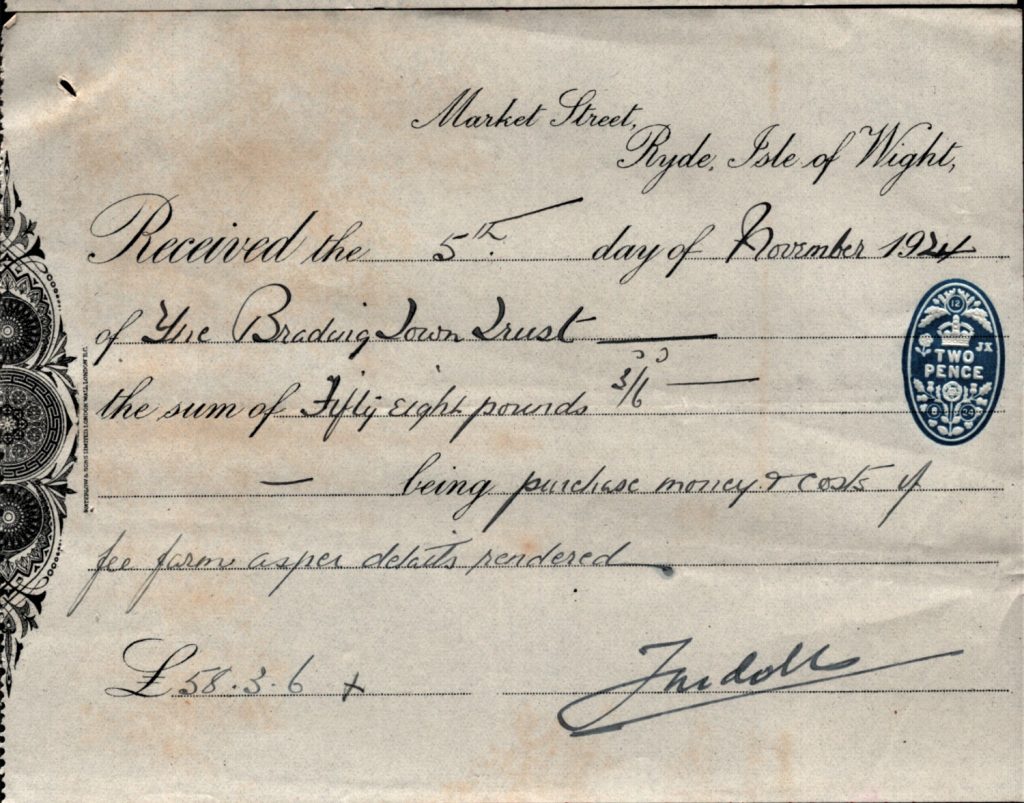 Market Street,
Ryde, Isle of Wight,
Received the 5th day of November 1924
of The Brading Town Trust
the sum of Fifty eight pounds 3/6
being purchase money & costs of
fee farm as per details rendered
£ 58.3.6
12
JX
TWO
PENCE
9 24